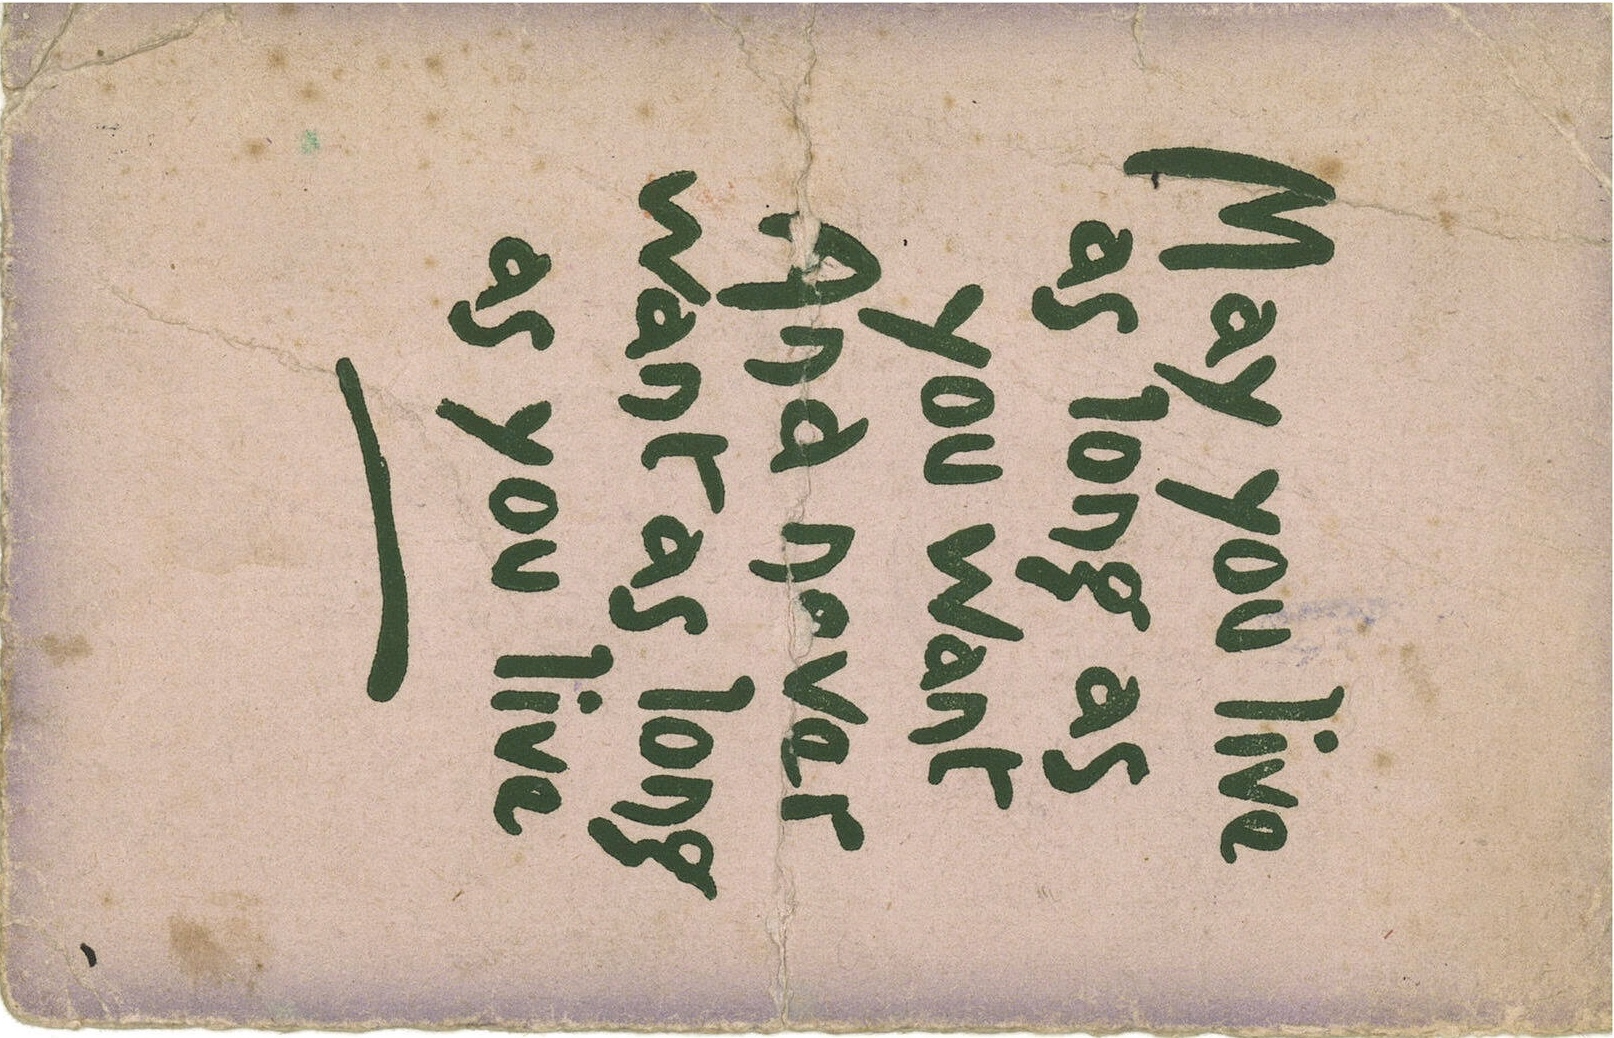 May you live
as long as
you want
And never
want as long
as you live